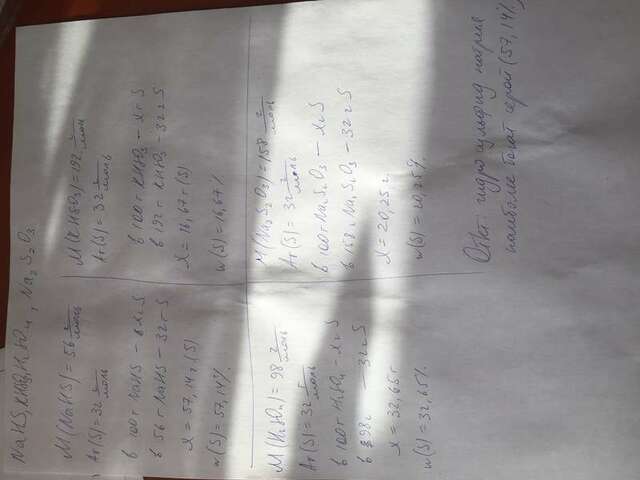 NaHS, KHSO3, H2SO4, Na2S2O3
M(NaHS) = 56 г/моль
Ar(S) = 32 г/моль
в 100 г NaHS – x г S
в 56 г NaHS – 32 г S
x = 57,14 г (S)
w(S) = 57,14%
M(KHSO3) = 192 г/моль
Ar(S) = 32 г/моль
в 100 г KHSO3 – x г S
в 192 г KHSO3 – 32 г S
x = 16,67 г (S)
w(S) = 16,67%
M(H2SO4) = 98 г/моль
Ar(S) = 32 г/моль
в 100 г H2SO4 – x г S
в 98 г – 32 г S
x = 32,65 г
w(S) = 32,65%
M(Na2S2O3) = 158 г/моль
Ar(S) = 32 г/моль
в 100 г Na2S2O3 – x г S
в 158 г Na2S2O3 – 32 г S
x = 20,25 г
w(S) = 20,25%
Ответ: гидросульфид натрия
наиболее богат серой (57,14%)